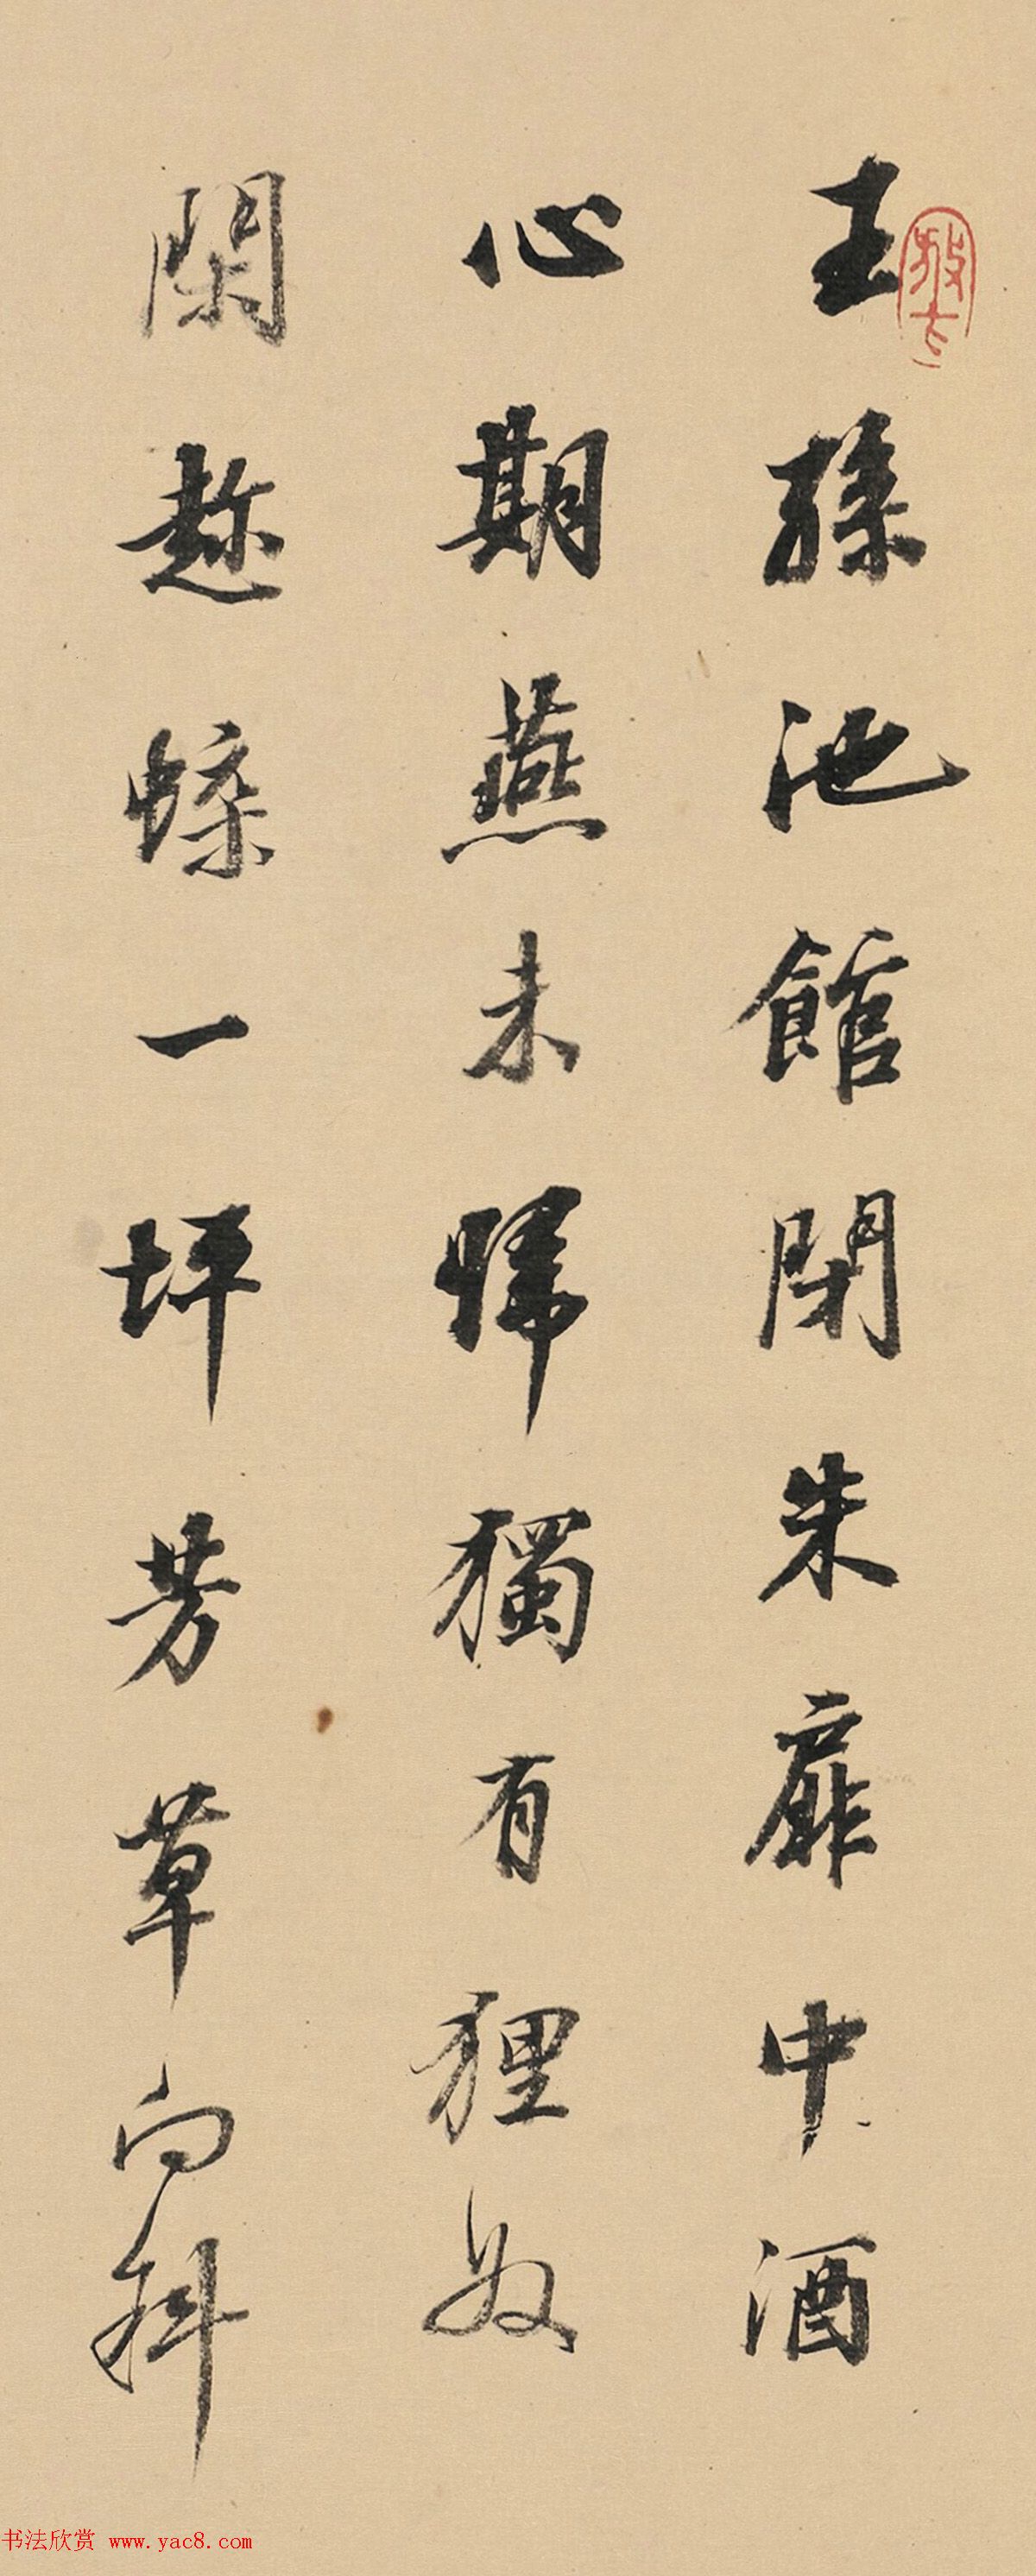 王孫池館閉朱扉中酒
心期燕未歸獨有狸奴
閑趁蝶一坪芳草向斜
书法欣赏 www.yac8.com